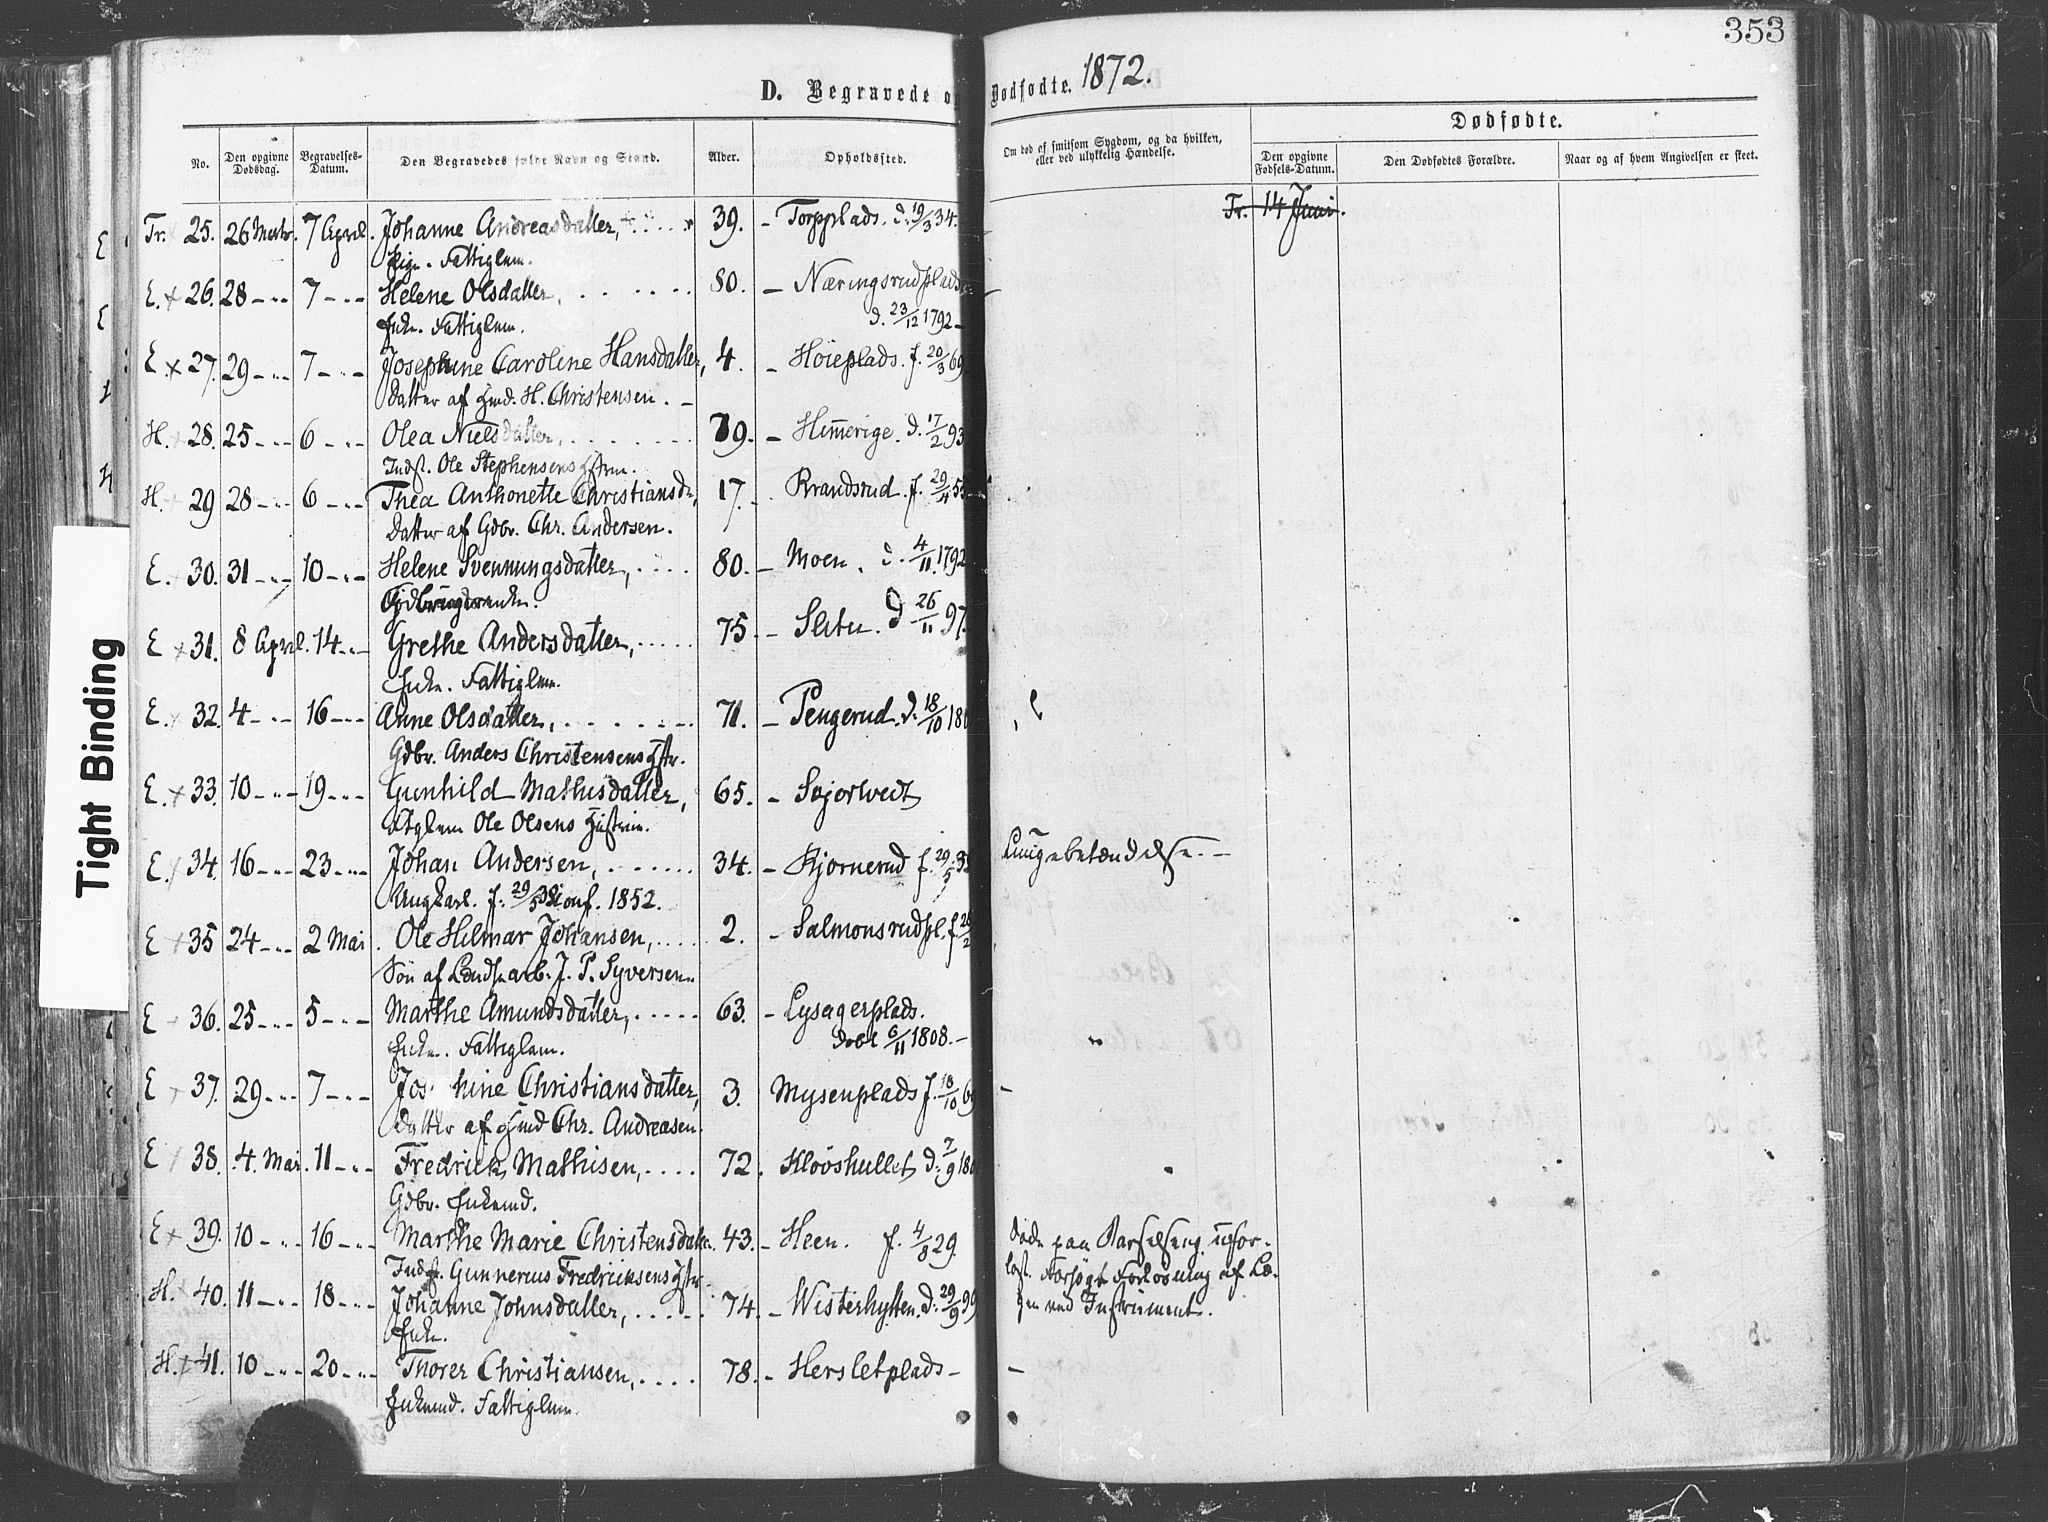 353
D. Begravede og Dødfødte. 1872.
No.
Den opgivne Dødsdag.
Begravelses-Datum.
Den Begravedes fulde Navn og Stand.
Alder.
Opholdssted.
Om død af smitsom Sygdom, og da hvilken, eller ved ulykkelig Hændelse.
Dødfødte.
Den opgivne Fødsels-Datum.
Den Dødfødtes Forældre.
Naar og af hvem Angivelsen er skeet.
Tr. 14 Juni.
Tr. 25. 26 Marts. 7 April. Johanne Andreasdatter, 39. - Torpplads. d. 19/3 34.
Pige. Fattiglem.
E. x 26. 28 - „ - 7 - „ - Helene Olsdatter, 80. - Næringsrudplads
Enke. Fattiglem. d. 23/12 1792 -
E. x 27. 29 - „ - 7 - „ - Josephine Caroline Hansdatter, 4. - Høieplads. f. 20/3 69
Datter af Hmd. H. Christensen. -
H. 28. 25 - „ - 6 - „ - Olea Nielsdatter, 79. - Himmerige. d. 17/2 93
Indst. Ole Stephensens Hstrue.
H. 29 28 - „ - 6 - „ - Thea Anthonette Christiansdr, 17. - Brandsrud. f. 29/4 55
Datter af Gdbr. Chr. Andersen.
E. 30. 31 - „ - 10 - „ - Helene Svenningsdatter, 80. - Moen. d. 4/11 1792
E x 31. 8 April. 14 - „ - Grethe Andersdatter, 75. - Sletu. d. 26/11 97.
Enke. Fattiglem.
E. x 32. 4 - „ - 16 - „ - Anne Olsdatter, 71. - Pengerud. d. 18/10 180
Gdbr. Anders Christensens Hstr.
E. x 33. 10 - „ - 19 - „ - Gunhild Mathisdatter, 65. - Skjortvedt
Ftglem Ole Olsens Hustrue.
E. x 34. 16 - „ - 23 - „ - Johan Andersen, 34. - Bjørnerud f. 29/5 38 Lungebetændelse. -
Ungkarl. f. 29/5 38 Conf. 1852.
E x 35 24 - „ - 2 Mai. Ole Hilmar Johansen, 2. - Salmonsrudpl. f. 28/2
Søn af Landh.arb. J. P. Syversen
E 36. 25 - „ - 5 - „ - Marthe Amundsdatter, 63. - Lysagerplads.
Enke. Fattiglem. døbt 6/11 1808. -
E 37. 29 - „ - 7 - „ - Josephine Christiansdatter, 3. Mysenplads f. 18/10 69 -
Datter af Hmd Chr. Andreasen.
E 38. 4. Mai. 11 - „ - Fredrick Mathisen, 72. Kløvshullet d. 7/9 180
Gdbr. Enkemd.
E x 39. 10 - „ - 16 - „ - Marthe Marie Christensdatter. 43. - Heen. f. 4/8 29 Døde paa Barselseng, ufor-
Indst. Gunnerius Fredricksens Hstr. løst. Forsøgt Forløsning af Læ-
H. x 40. 11 - „ - 18 - „ - Johanne Johnsdatter, 74. - Wisterhytten. d. 29/9 99 gen ved Instrument.
Enke.
H. x 41. 10 - „ - 20 - „ - Thorer Christiansen, 78. - Hersletplads - -
Enkemd. Fattiglem.
Tight Binding